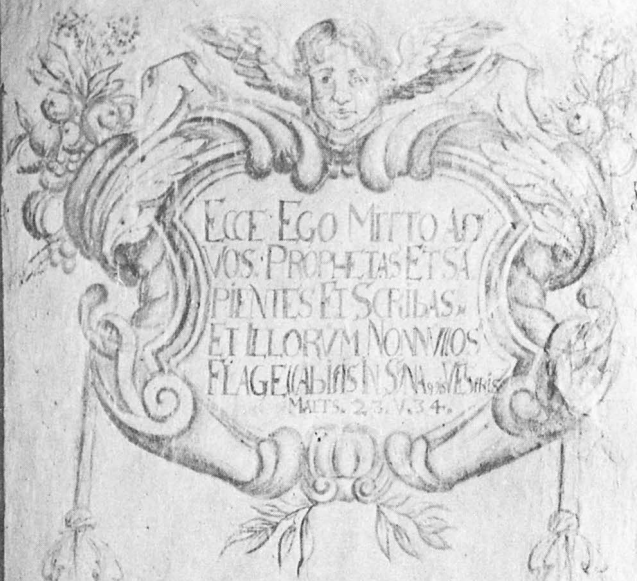 ECCE EGO MITTO AD
VOS PROPHETAS ET SA
PIENTES ET SCRIBAS
ET ILLORVM NONNVLLOS
FLAGELLABITIS IN SYNAgogis VESTRIS
MATTS. 23. V. 34.